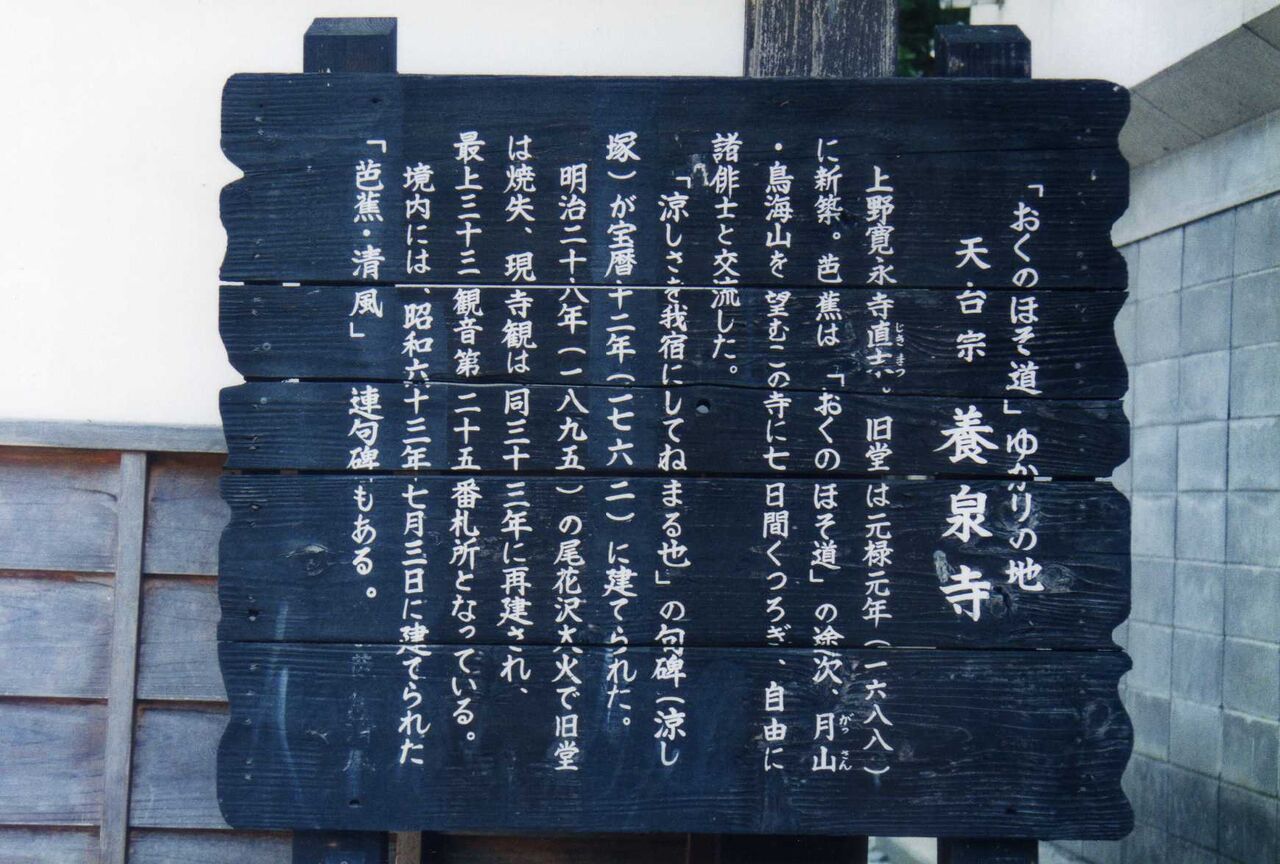 「おくのほそ道」ゆかりの地
天台宗 養泉寺
上野寛永寺直末。旧堂は元禄元年(一六八八)
じきまつ
に新築。芭蕉は「おくのほそ道」の途次、月山
がっさん
・鳥海山を望むこの寺に七日間くつろぎ、自由に
諸俳士と交流した。
「涼しさを我宿にしてねまる也」の句碑(涼し
塚)が宝暦十二年(一七六二)に建てられた。
明治二十八年(一八九五)の尾花沢大火で旧堂
は焼失、現寺観は同三十三年に再建され、
最上三十三観音第二十五番札所となっている。
境内には、昭和六十三年七月三日に建てられた
「芭蕉・清風」連句碑もある。